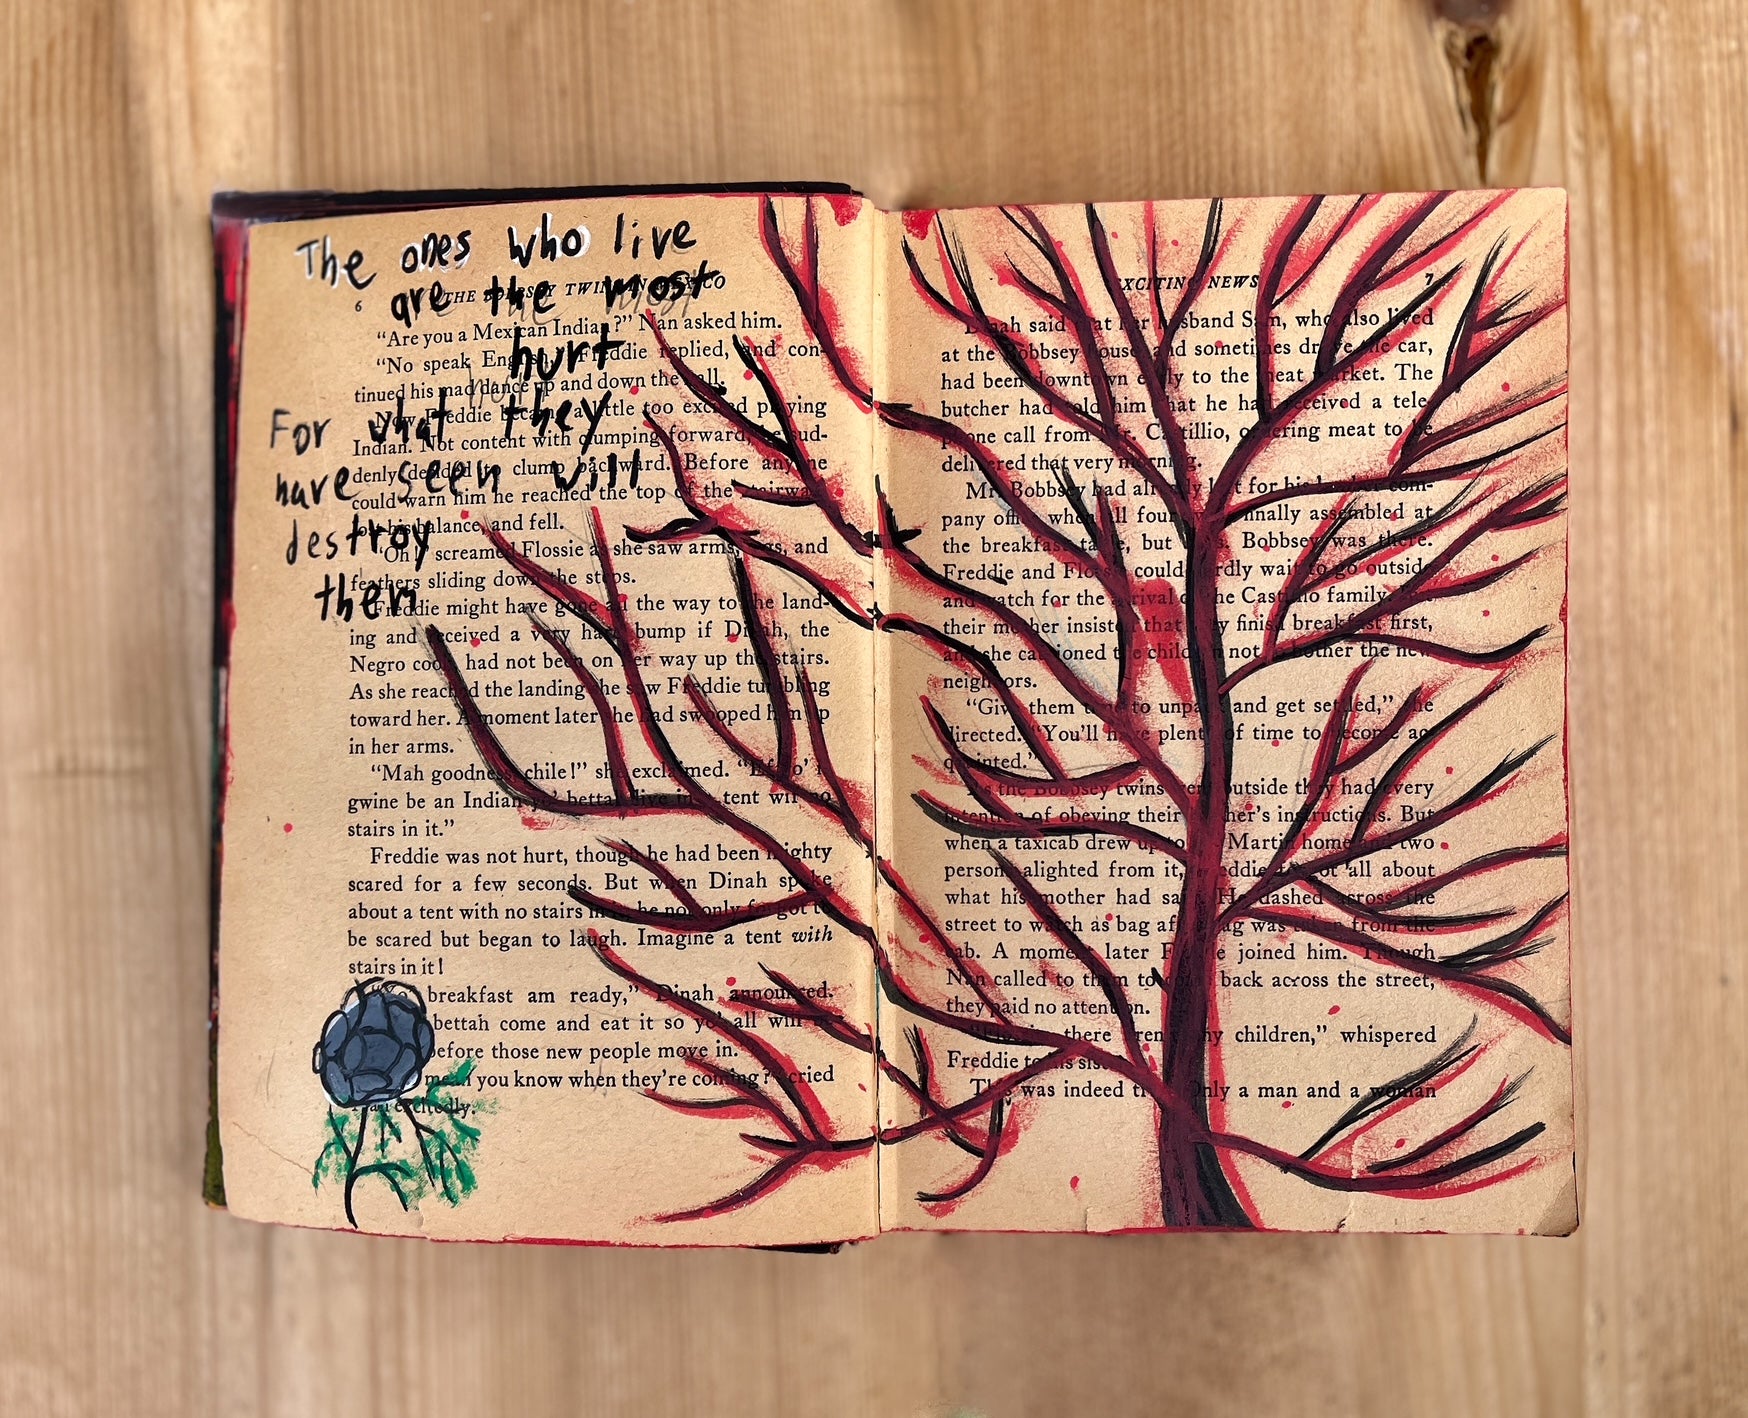 The ones who live
are the most
hurt
For what they
have seen will
destroy
them
6 THE BOBBSEY TWINS IN MEXICO
“Are you a Mexican Indian?” Nan asked him.
“No speak English,” Freddie replied, and con-
tinued his mad dance up and down the hall.
Now Freddie became a little too excited playing
Indian. Not content with clumping forward, he sud-
denly decided to clump backward. Before anyone
could warn him he reached the top of the stairway
lost his balance, and fell.
“Oh!” screamed Flossie as she saw arms, legs, and
feathers sliding down the steps.
Freddie might have gone all the way to the land-
ing and received a very hard bump if Dinah, the
Negro cook, had not been on her way up the stairs.
As she reached the landing she saw Freddie tumbling
toward her. A moment later she had swooped him up
in her arms.
“Mah goodness, chile!” she exclaimed. “Ef yo’
gwine be an Indian yo’ bettah live in a tent wif no
stairs in it.”
Freddie was not hurt, though he had been mighty
scared for a few seconds. But when Dinah spoke
about a tent with no stairs in it he not only forgot to
be scared but began to laugh. Imagine a tent with
stairs in it!
breakfast am ready,” Dinah announced.
bettah come and eat it so yo’ all will be
before those new people move in.
mean you know when they’re coming?” cried
Nan excitedly.
EXCITING NEWS 7
Dinah said that her husband Sam, who also lived
at the Bobbsey house and sometimes drove the car,
had been downtown early to the meat market. The
butcher had told him that he had received a tele-
phone call from Mr. Castillio, ordering meat to be
delivered that very morning.
Mr. Bobbsey had already left for his lumber com-
pany office when all four were finally assembled at
the breakfast table, but Mrs. Bobbsey was there.
Freddie and Flossie could hardly wait to go outside
and watch for the arrival of the Castillio family. But
their mother insisted that they finish breakfast first,
and she cautioned the children not to bother the new
neighbors.
“Give them time to unpack and get settled,” she
directed. “You’ll have plenty of time to become ac-
quainted.”
As the Bobbsey twins went outside they had every
intention of obeying their mother’s instructions. But
when a taxicab drew up to the Martin home and two
persons alighted from it, Freddie forgot all about
what his mother had said. He dashed across the
street to watch as bag after bag was taken from the
cab. A moment later Flossie joined him. Though
Nan called to them to come back across the street,
they paid no attention.
there aren’t any children,” whispered
Freddie to his sister.
This was indeed true. Only a man and a woman